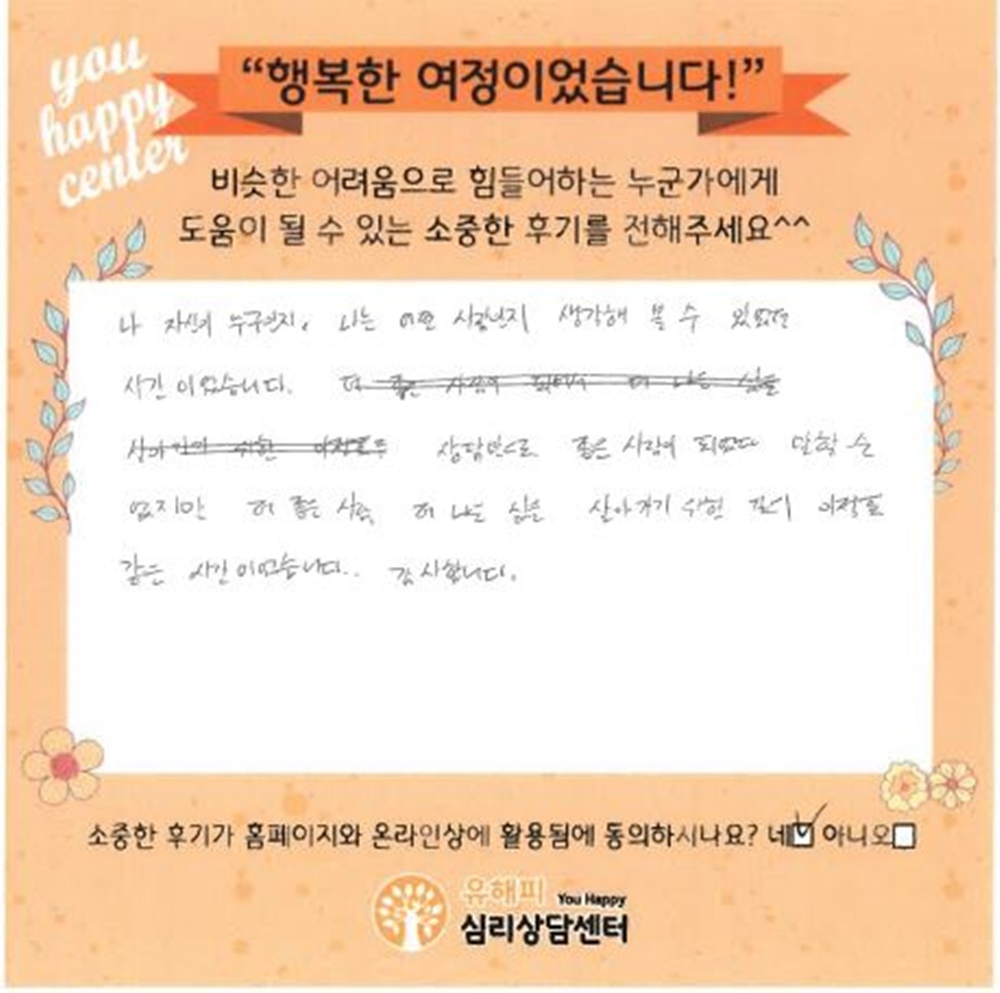 you
happy
center
“행복한 여정이었습니다!”
비슷한 어려움으로 힘들어하는 누군가에게
도움이 될 수 있는 소중한 후기를 전해주세요^^
나 자신이 누구인지, 나는 어떤 사람인지 생각해 볼 수 있었던
시간이었습니다. 더 좋은 사람이 되어서 더 나은 삶을
살아가기 위한 이정표
상담만으로 좋은 사람이 되었다 말할 순
없지만 더 좋은 사람, 더 나은 삶을 살아가기 위한 길에 이정표
같은 시간이었습니다.. 감사합니다.
소중한 후기가 홈페이지와 온라인상에 활용됨에 동의하시나요? 네 아니오
유해피 You Happy
심리상담센터